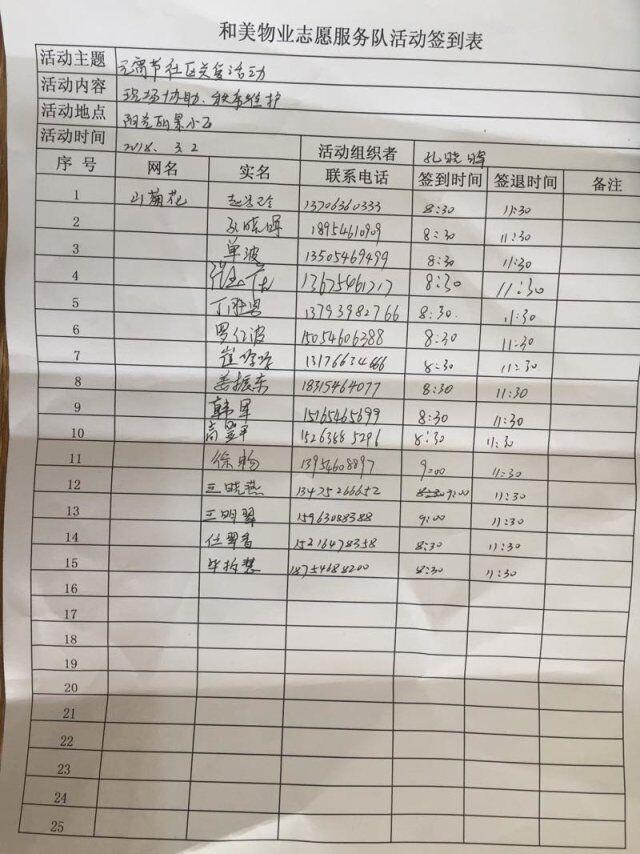 和美物业志愿服务队活动签到表
活动主题 元宵节社区关爱活动
活动内容 现场协助、秩序维护
活动地点 阳光丽景小区
活动时间 2018. 3. 2 活动组织者 孔晓晖
序号 网名 实名 联系电话 签到时间 签退时间 备注
1 山菊花 13706360333 8:30 11:30
2 孔晓晖 18954610909 8:30 11:30
3 单波 13505469499 8:30 11:30
4 13675461717 8:30 11:30
5 13793982766 8:30 11:30
6 罗仁波 15054606388 8:30 11:30
7 崔 13176634666 8:30 11:30
8 姜振东 18315464077 8:30 11:30
9 韩军 15165465699 8:30 11:30
10 高 1526388 5296 8:30 11:30
11 徐畅 13954608897 9:00 11:30
12 王晓燕 13475266652 9:00 11:30
13 王明翠 15963088388 9:00 11:30
14 任翠香 15216478358 8:30 11:30
15 毕 18754688200 8:30 11:30
16
17
18
19
20
21
22
23
24
25